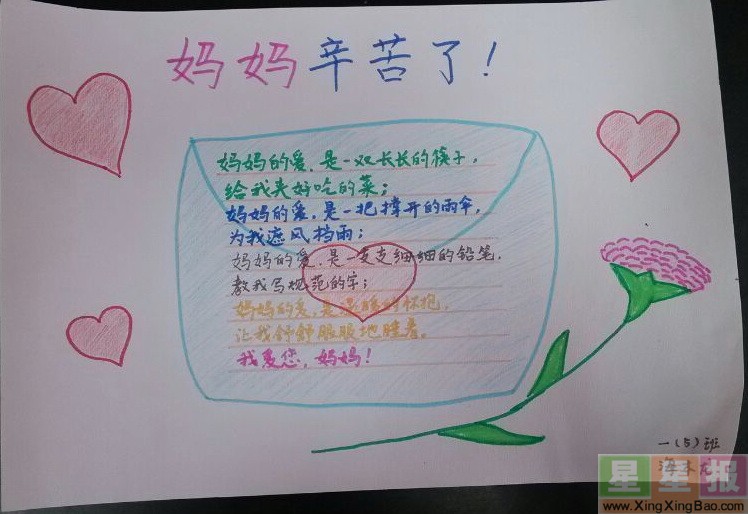 妈妈辛苦了!
妈妈的爱,是一双长长的筷子,
给我夹好吃的菜;
妈妈的爱,是一把撑开的雨伞,
为我遮风挡雨;
妈妈的爱,是一支支细细的铅笔,
教我写规范的字;
妈妈的爱,是温暖的怀抱,
让我舒舒服服地睡着。
我爱您,妈妈!
一(5)班
星星报
www.XingXingBao.com